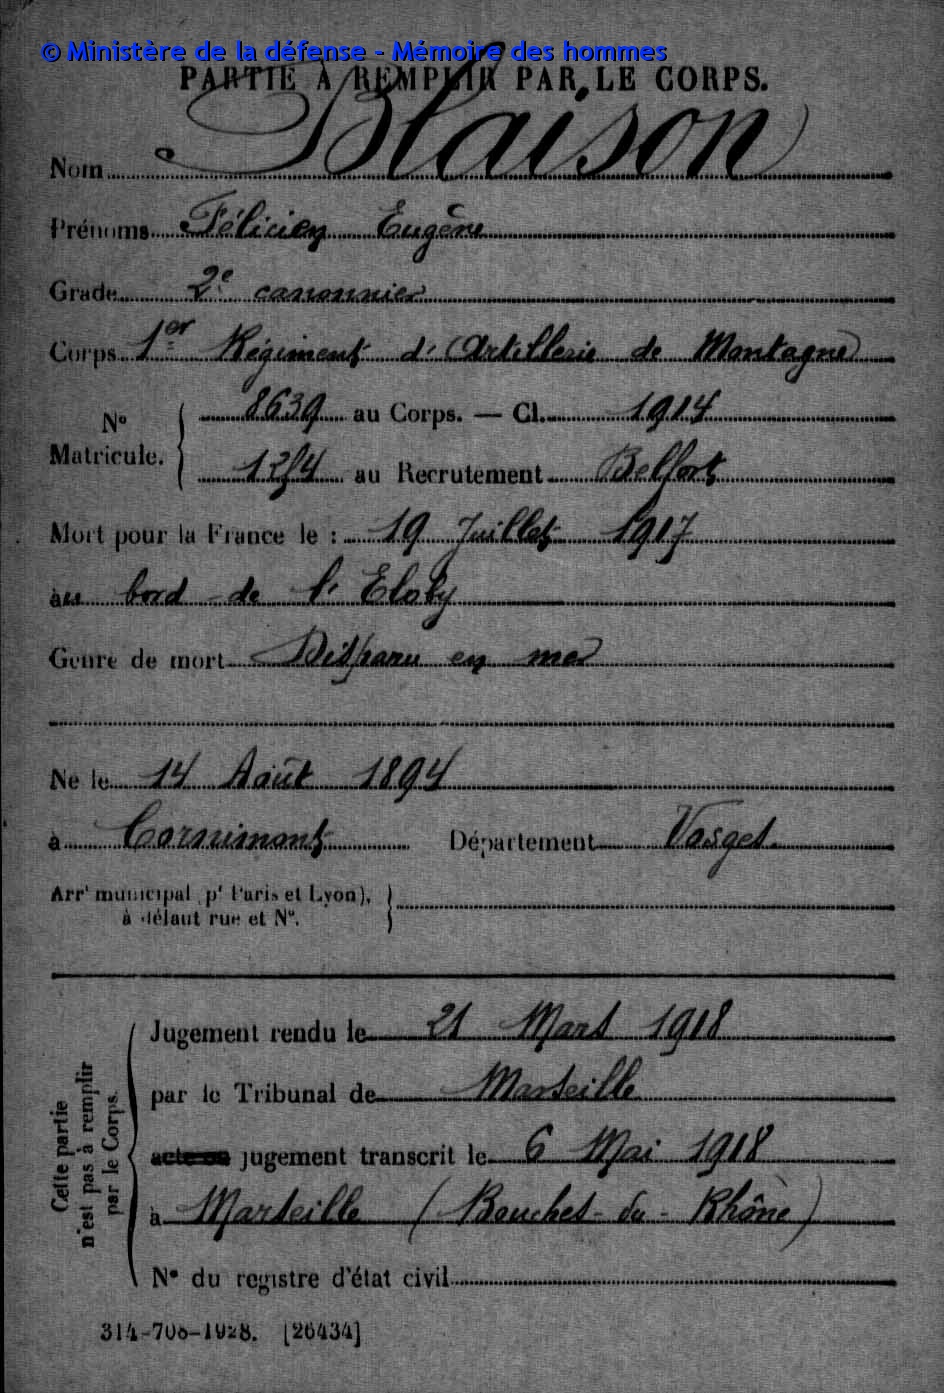 © Ministère de la défense - Mémoire des hommes
PARTIE À REMPLIR PAR LE CORPS.
Nom Blaison
Prénoms Félicien Eugène
Grade 2e canonnier
Corps 1er Régiment d'Artillerie de Montagne
No Matricule. { 8639 au Corps. — Cl. 1914
1254 au Recrutement Belfort
Mort pour la France le : 19 Juillet 1917
au bord de l'Eloby
Genre de mort Disparu en mer
Né le 14 Août 1894
à Cornimont Département Vosges.
Arrt municipal (pr Paris et Lyon),
à défaut rue et No.
Cette partie n'est pas à remplir par le Corps.
Jugement rendu le 21 Mars 1918
par le Tribunal de Marseille
acte ou jugement transcrit le 6 Mai 1918
à Marseille (Bouches-du-Rhône)
No du registre d'état civil
314-708-1928. [26434]